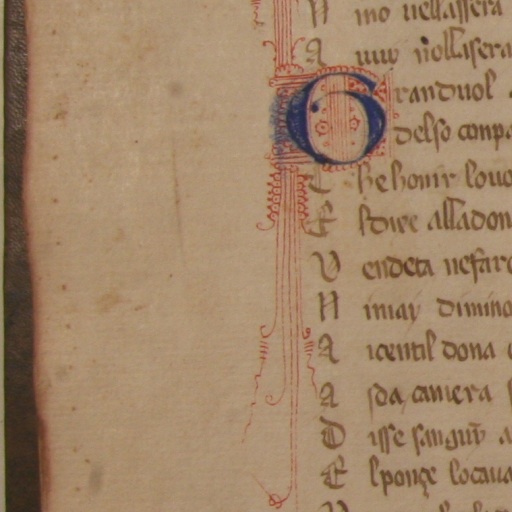 N ino uellassera
A uuy nollasera
Granduol
delso conpa
C he honir louo
E sdire alladon
V endeta nefar
N iniay dimino
A icentil dona
A sda camera
D isse sangur a
E lponçe locaua